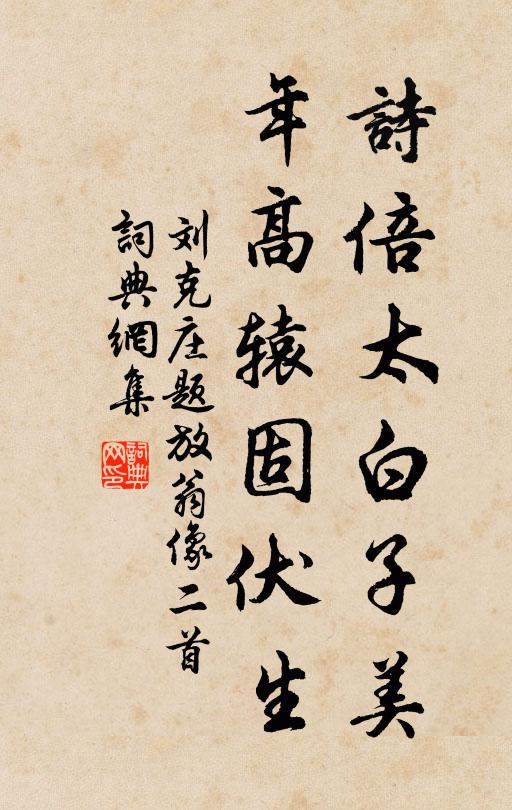 詩倍太白子美
年高辕固伏生
刘克庄题放翁像二首
詞典網集
詞典網印